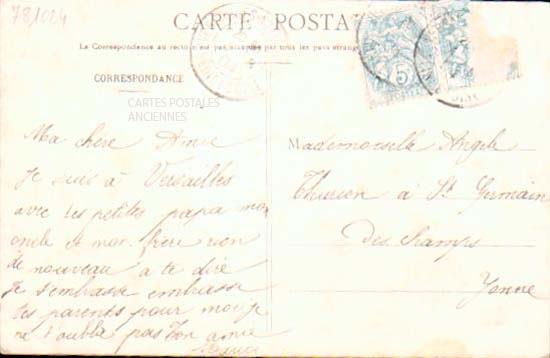 781024
CARTE POSTALE
La Correspondance au recto n'est pas acceptée par tous les pays étrangers
CORRESPONDANCE
CARTES POSTALES
ANCIENNES
Ma chère Amie
Je suis à Versailles
avec les petites papa mon
oncle et mon frère rien
de nouveau a te dire
Je t'embrasse embrasse
tes parents pour moi je
ne t'oubli pas ton amie
Mademoiselle Angele
Thurien à St Germain
des champs
Yonne
5